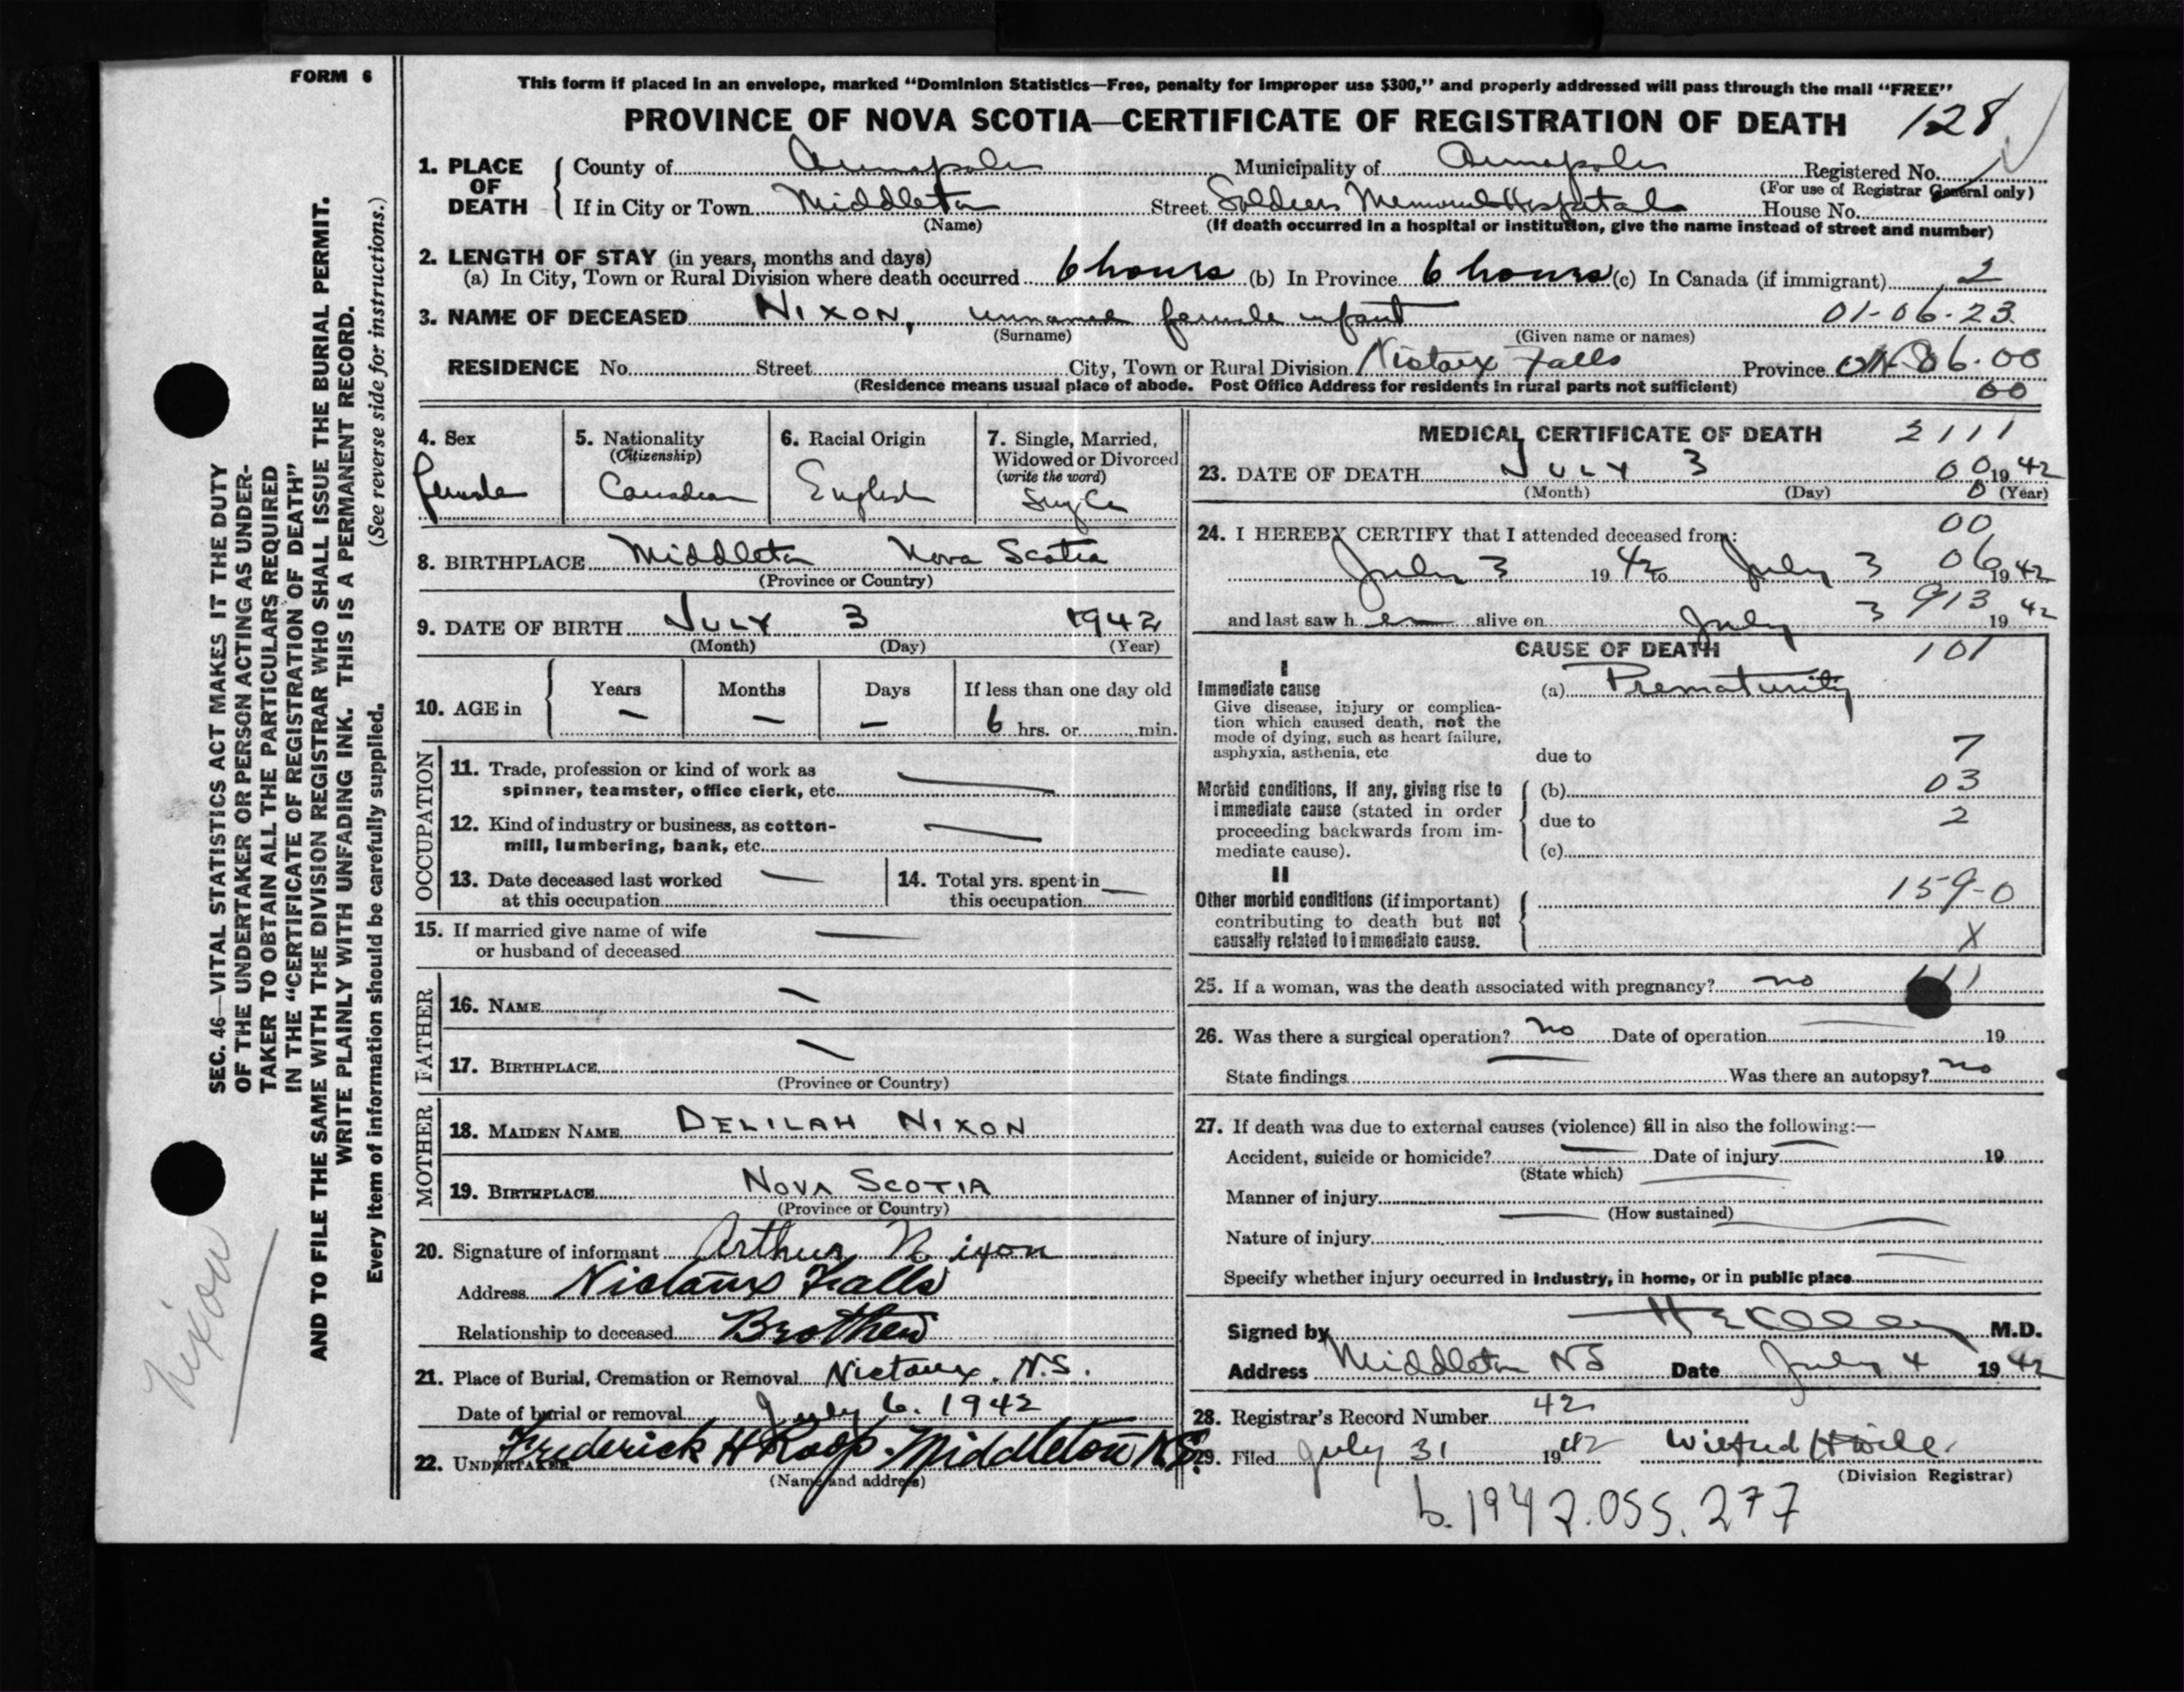 FORM 6
This form if placed in an envelope, marked “Dominion Statistics—Free, penalty for improper use $300,” and properly addressed will pass through the mail “FREE”
PROVINCE OF NOVA SCOTIA—CERTIFICATE OF REGISTRATION OF DEATH 128
SEC. 46—VITAL STATISTICS ACT MAKES IT THE DUTY
OF THE UNDERTAKER OR PERSON ACTING AS UNDER-
TAKER TO OBTAIN ALL THE PARTICULARS REQUIRED
IN THE “CERTIFICATE OF REGISTRATION OF DEATH”
AND TO FILE THE SAME WITH THE DIVISION REGISTRAR WHO SHALL ISSUE THE BURIAL PERMIT.
WRITE PLAINLY WITH UNFADING INK. THIS IS A PERMANENT RECORD.
Every item of information should be carefully supplied. (See reverse side for instructions.)
Nixon
1. PLACE OF DEATH
County of Annapolis Municipality of Annapolis Registered No.
(For use of Registrar General only)
If in City or Town Middleton Street Soldiers Memorial Hospital House No.
(Name) (If death occurred in a hospital or institution, give the name instead of street and number)
2. LENGTH OF STAY (in years, months and days)
(a) In City, Town or Rural Division where death occurred 6 hours (b) In Province 6 hours (c) In Canada (if immigrant) 2
3. NAME OF DECEASED NIXON, unnamed female infant 01-06-23
(Surname) (Given name or names)
RESIDENCE No. Street City, Town or Rural Division Nictaux Falls Province 06-00
(Residence means usual place of abode. Post Office Address for residents in rural parts not sufficient) 00
4. Sex female
5. Nationality (Citizenship) Canadian
6. Racial Origin English
7. Single, Married, Widowed or Divorced (write the word) Single
8. BIRTHPLACE Middleton Nova Scotia
(Province or Country)
9. DATE OF BIRTH JULY 3 1942
(Month) (Day) (Year)
10. AGE in Years — Months — Days — If less than one day old
6 hrs. or min.
OCCUPATION
11. Trade, profession or kind of work as
spinner, teamster, office clerk, etc. —
12. Kind of industry or business, as cotton-
mill, lumbering, bank, etc. —
13. Date deceased last worked —
at this occupation
14. Total yrs. spent in —
this occupation
15. If married give name of wife —
or husband of deceased
FATHER
16. NAME —
17. BIRTHPLACE —
(Province or Country)
MOTHER
18. MAIDEN NAME DELILAH NIXON
19. BIRTHPLACE NOVA SCOTIA
(Province or Country)
20. Signature of informant Arthur Nixon
Address Nictaux Falls
Relationship to deceased Brother
21. Place of Burial, Cremation or Removal Nictaux. N.S.
Date of burial or removal July 6. 1942
22. UNDERTAKER Frederick H Roop. Middleton N.S.
(Name and address)
MEDICAL CERTIFICATE OF DEATH 2111
23. DATE OF DEATH JULY 3 00 1942
(Month) (Day) 0 (Year)
24. I HEREBY CERTIFY that I attended deceased from: 00
July 3 1942 to July 3 06 1942
and last saw h er alive on July 3 913 1942
CAUSE OF DEATH 101
I
Immediate cause (a) Prematurity
Give disease, injury or complica-
tion which caused death, not the
mode of dying, such as heart failure,
asphyxia, asthenia, etc due to 7
Morbid conditions, if any, giving rise to (b) 03
immediate cause (stated in order due to 2
proceeding backwards from im-
mediate cause). (c)
II
Other morbid conditions (if important) 159-0
contributing to death but not
causally related to immediate cause. X
25. If a woman, was the death associated with pregnancy? no
26. Was there a surgical operation? no Date of operation — 19
State findings — Was there an autopsy? no
27. If death was due to external causes (violence) fill in also the following:—
Accident, suicide or homicide? — Date of injury — 19
(State which)
Manner of injury —
(How sustained)
Nature of injury —
Specify whether injury occurred in industry, in home, or in public place —
Signed by M.D.
Address Middleton NS Date July 4 1942
28. Registrar’s Record Number 42
29. Filed July 31 1942 Wilfred
(Division Registrar)
b. 1942.055.277